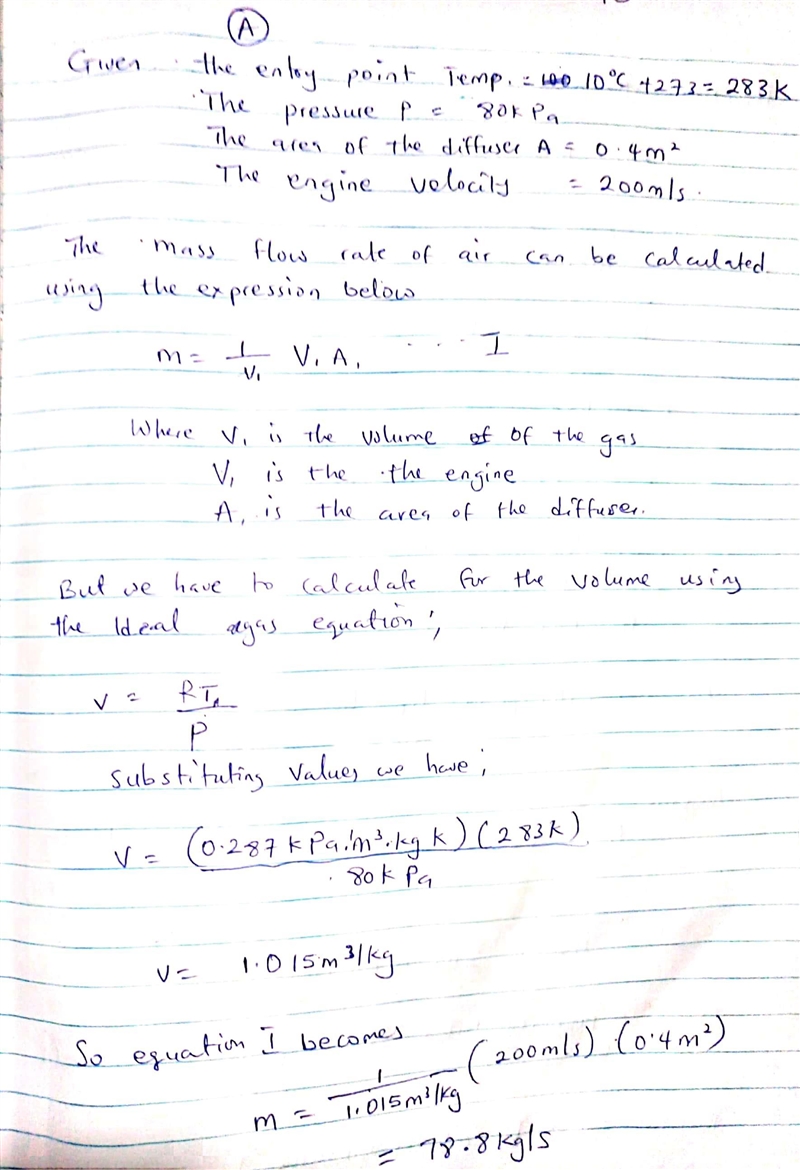 A
Given the entry point Temp. = 100 10°C +273 = 283K
The pressure P = 80kPa
The area of the diffuser A = 0.4m²
The engine velocity = 200m/s.
The mass flow rate of air can be calculated
using the expression below
m = 1/V₁ V₁ A₁ ... I
Where V₁ is the volume of of the gas
V₁ is the the engine
A₁ is the area of the diffuser.
But we have to calculate for the volume using
the Ideal gas equation;
v = RT₁/P
Substituting values we have;
V = (0.287 kPa.m³.kg K) (283K)/80k Pa
V = 1.015m³/kg
So equation I becomes
m = 1/1.015m³/kg (200m/s) (0.4m²)
= 78.8kg/s